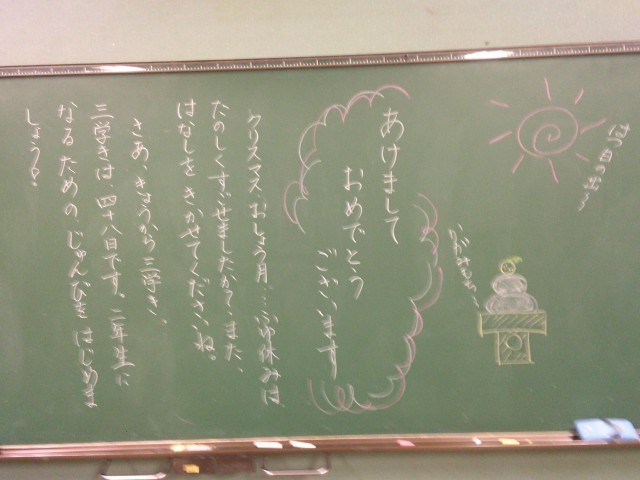 初日の出〜
かがみもち〜
あけまして
おめでとう
ございます
クリスマス、おしょう月、…冬休みは
たのしくすごせましたか?また、
はなしをきかせてくださいね。
さあ、きょうから三学き、
三学きは、四十八日です。二年生に
なるための、じゅんびをはじめま
しょう!